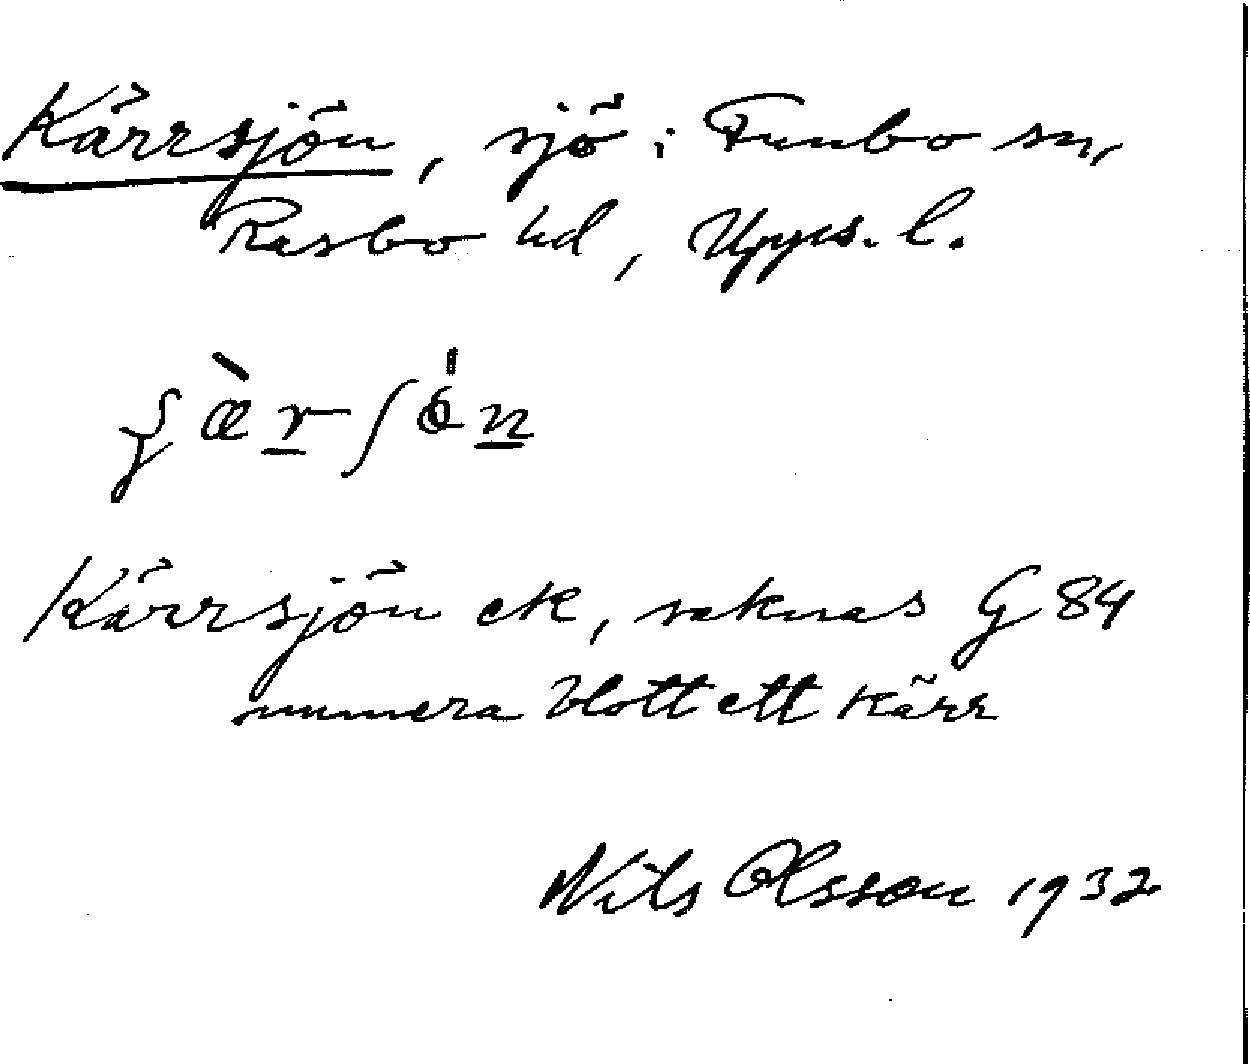 Kärrsjön, sjö i Funbo sn,
Rasbo hd, Upps. l.
Kärrsjön ek, saknas G 84
numera blott ett kärr
Nils Olsson 1932